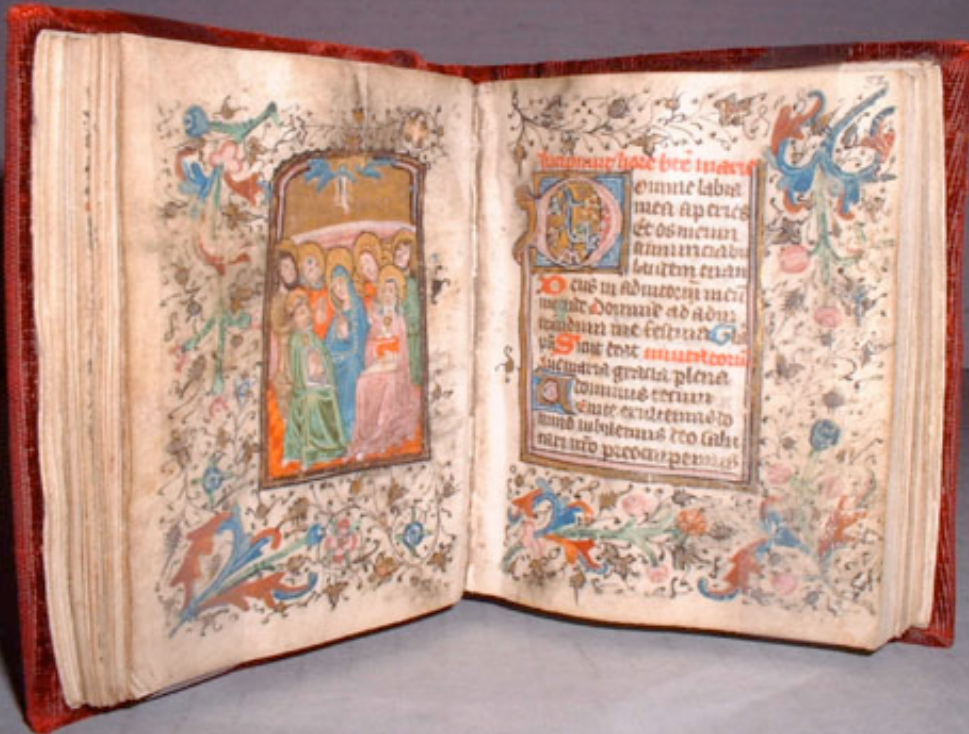 Incipiut hore bte marie
Domine labia
mea aperies
Et os meum
annunciabit
laudem tuam
Deus in adiutoriu meu
intende Domine ad adiu
vandum me festina Glia
pri Sicut erat invitatoriu
Ave maria gracia plena
dominus tecum
Venite exultemus do
mino iubilemus deo salu
tari nro preoccupemus